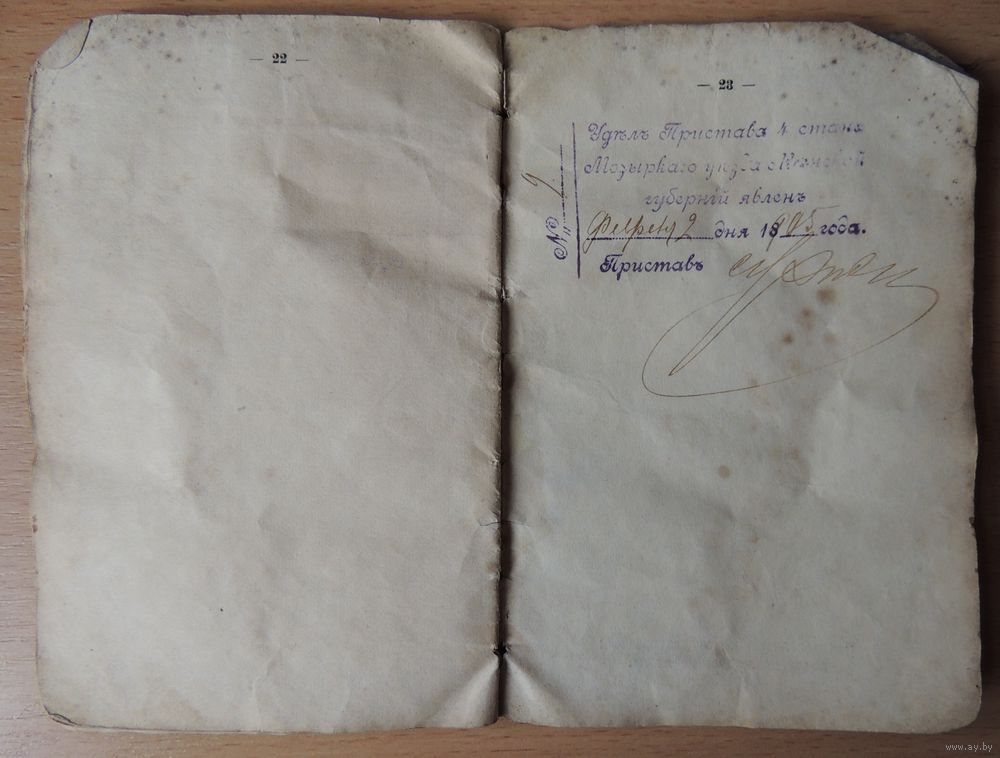 — 22 —
— 23 —
№ 2
Удѣлъ Пристава 4 стана
Мозыркаго уѣзда Минской
губерніи явленъ
2 дня 18 года.
Приставъ
www.ay.by